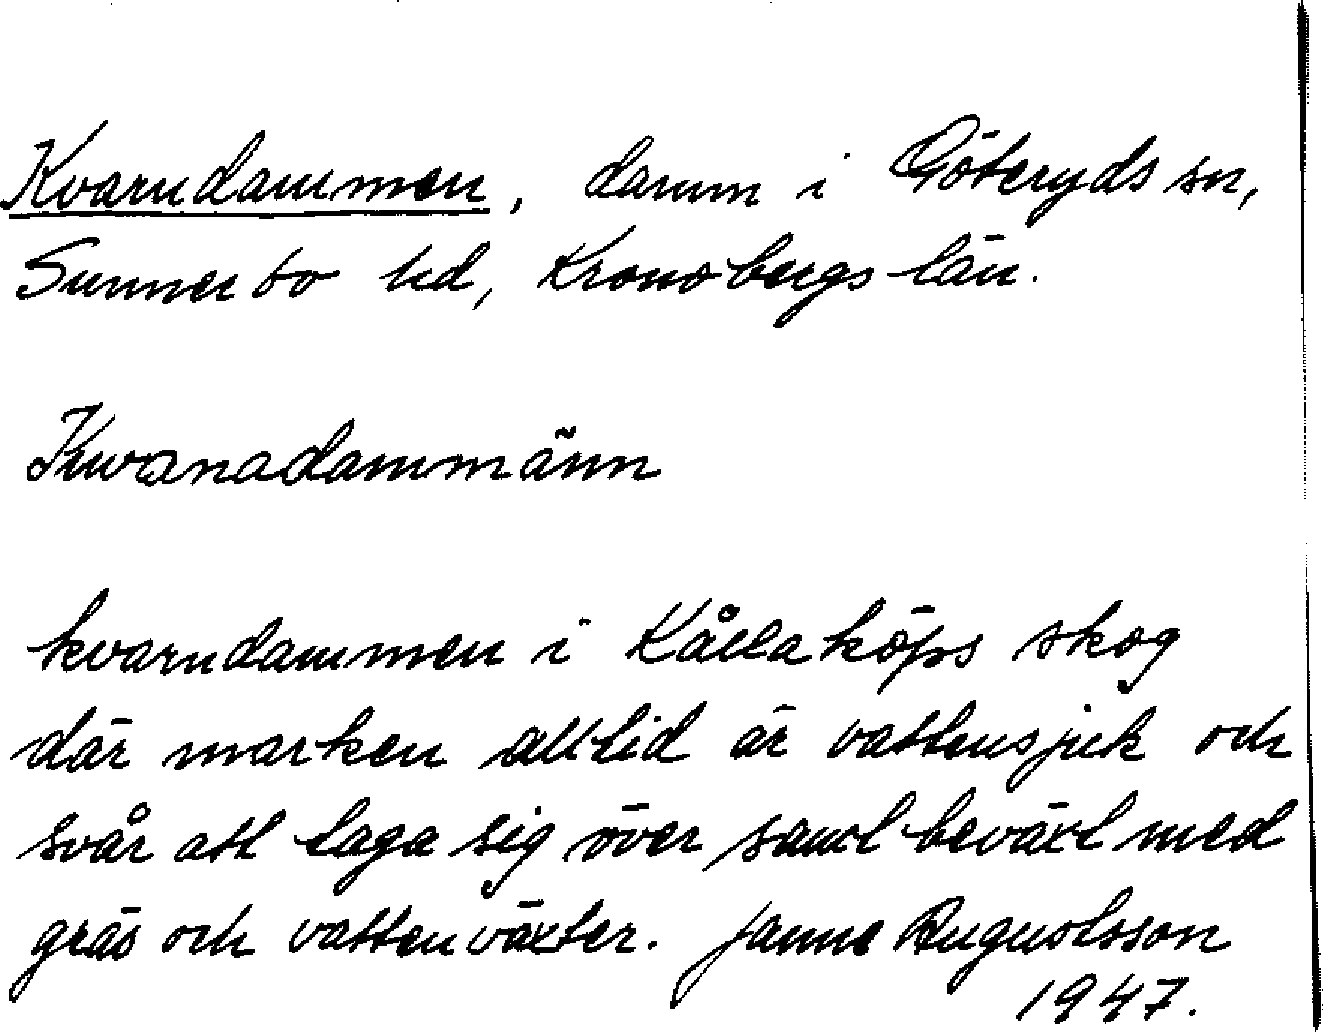 Kvarndammen, damm i Göteryds sn,
Sunnerbo hd, Kronobergs län.
Kwanadammänn
kvarndammen i Kållaköps skog
där marken alltid är vattensjuk och
svår att taga sig över samt beväxt med
gräs och vattenväxter. Janne Augustsson
1947.